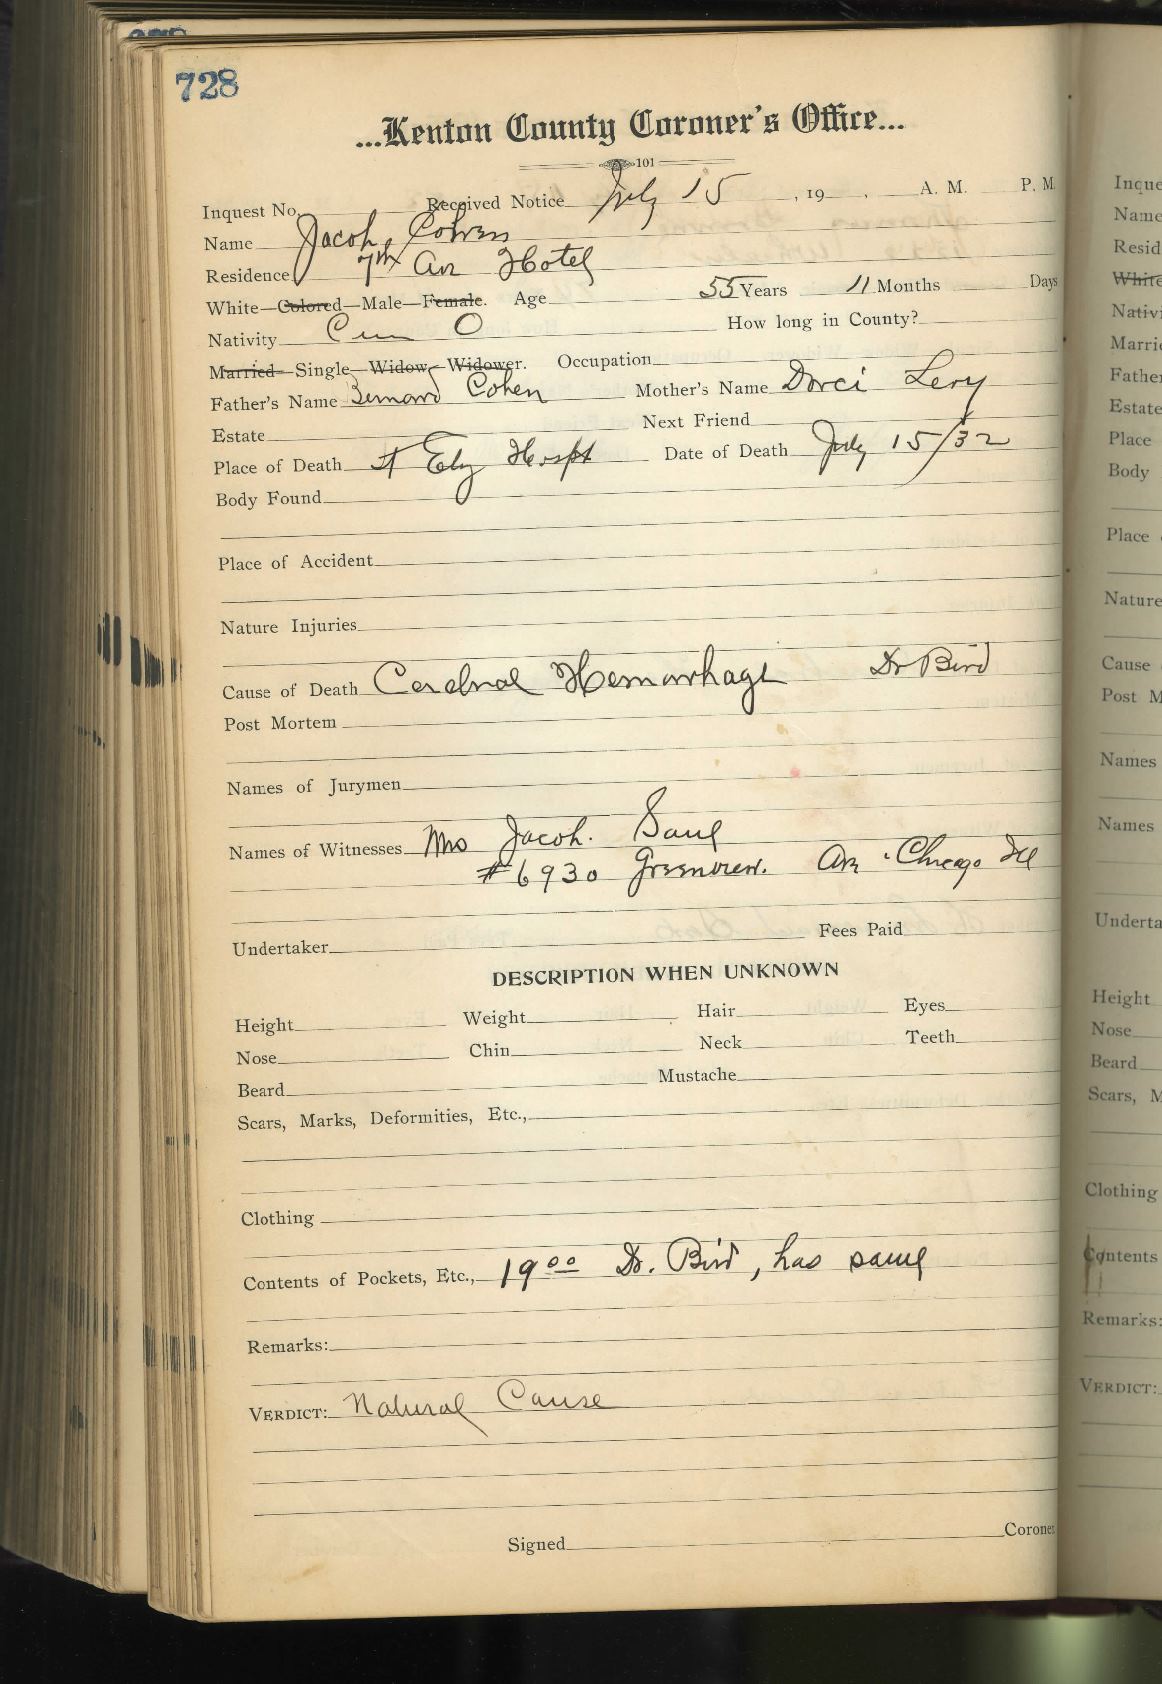 728
...Kenton County Coroner's Office...
101
Inquest No. Received Notice July 15, 19 , A. M. P. M.
Name Jacob, Cohen
Residence 7th Av Hotel
White—Colored—Male—Female. Age 55 Years 11 Months Days
Nativity Cin O How long in County?
Married—Single—Widow—Widower. Occupation
Father's Name Bernard Cohen Mother's Name Dorci Levy
Estate Next Friend
Place of Death St Elz Hospt Date of Death July 15/32
Body Found
Place of Accident
Nature Injuries
Cause of Death Cerebral Hemorrhage Dr Bird
Post Mortem
Names of Jurymen
Names of Witnesses Mrs Jacob. Saul
#6930 Greenview. Av. Chicago Ill
Undertaker Fees Paid
DESCRIPTION WHEN UNKNOWN
Height Weight Hair Eyes
Nose Chin Neck Teeth
Beard Mustache
Scars, Marks, Deformities, Etc.,
Clothing
Contents of Pockets, Etc., 19 00 Dr. Bird, has same
Remarks:
VERDICT: Natural Cause
Signed Coroner
Inque
Name
Resid
White
Nativi
Marri
Father
Estate
Place
Body
Place
Nature
Cause
Post M
Names
Names
Underta
Height
Nose
Beard
Scars, M
Clothing
Contents
Remarks:
VERDICT: